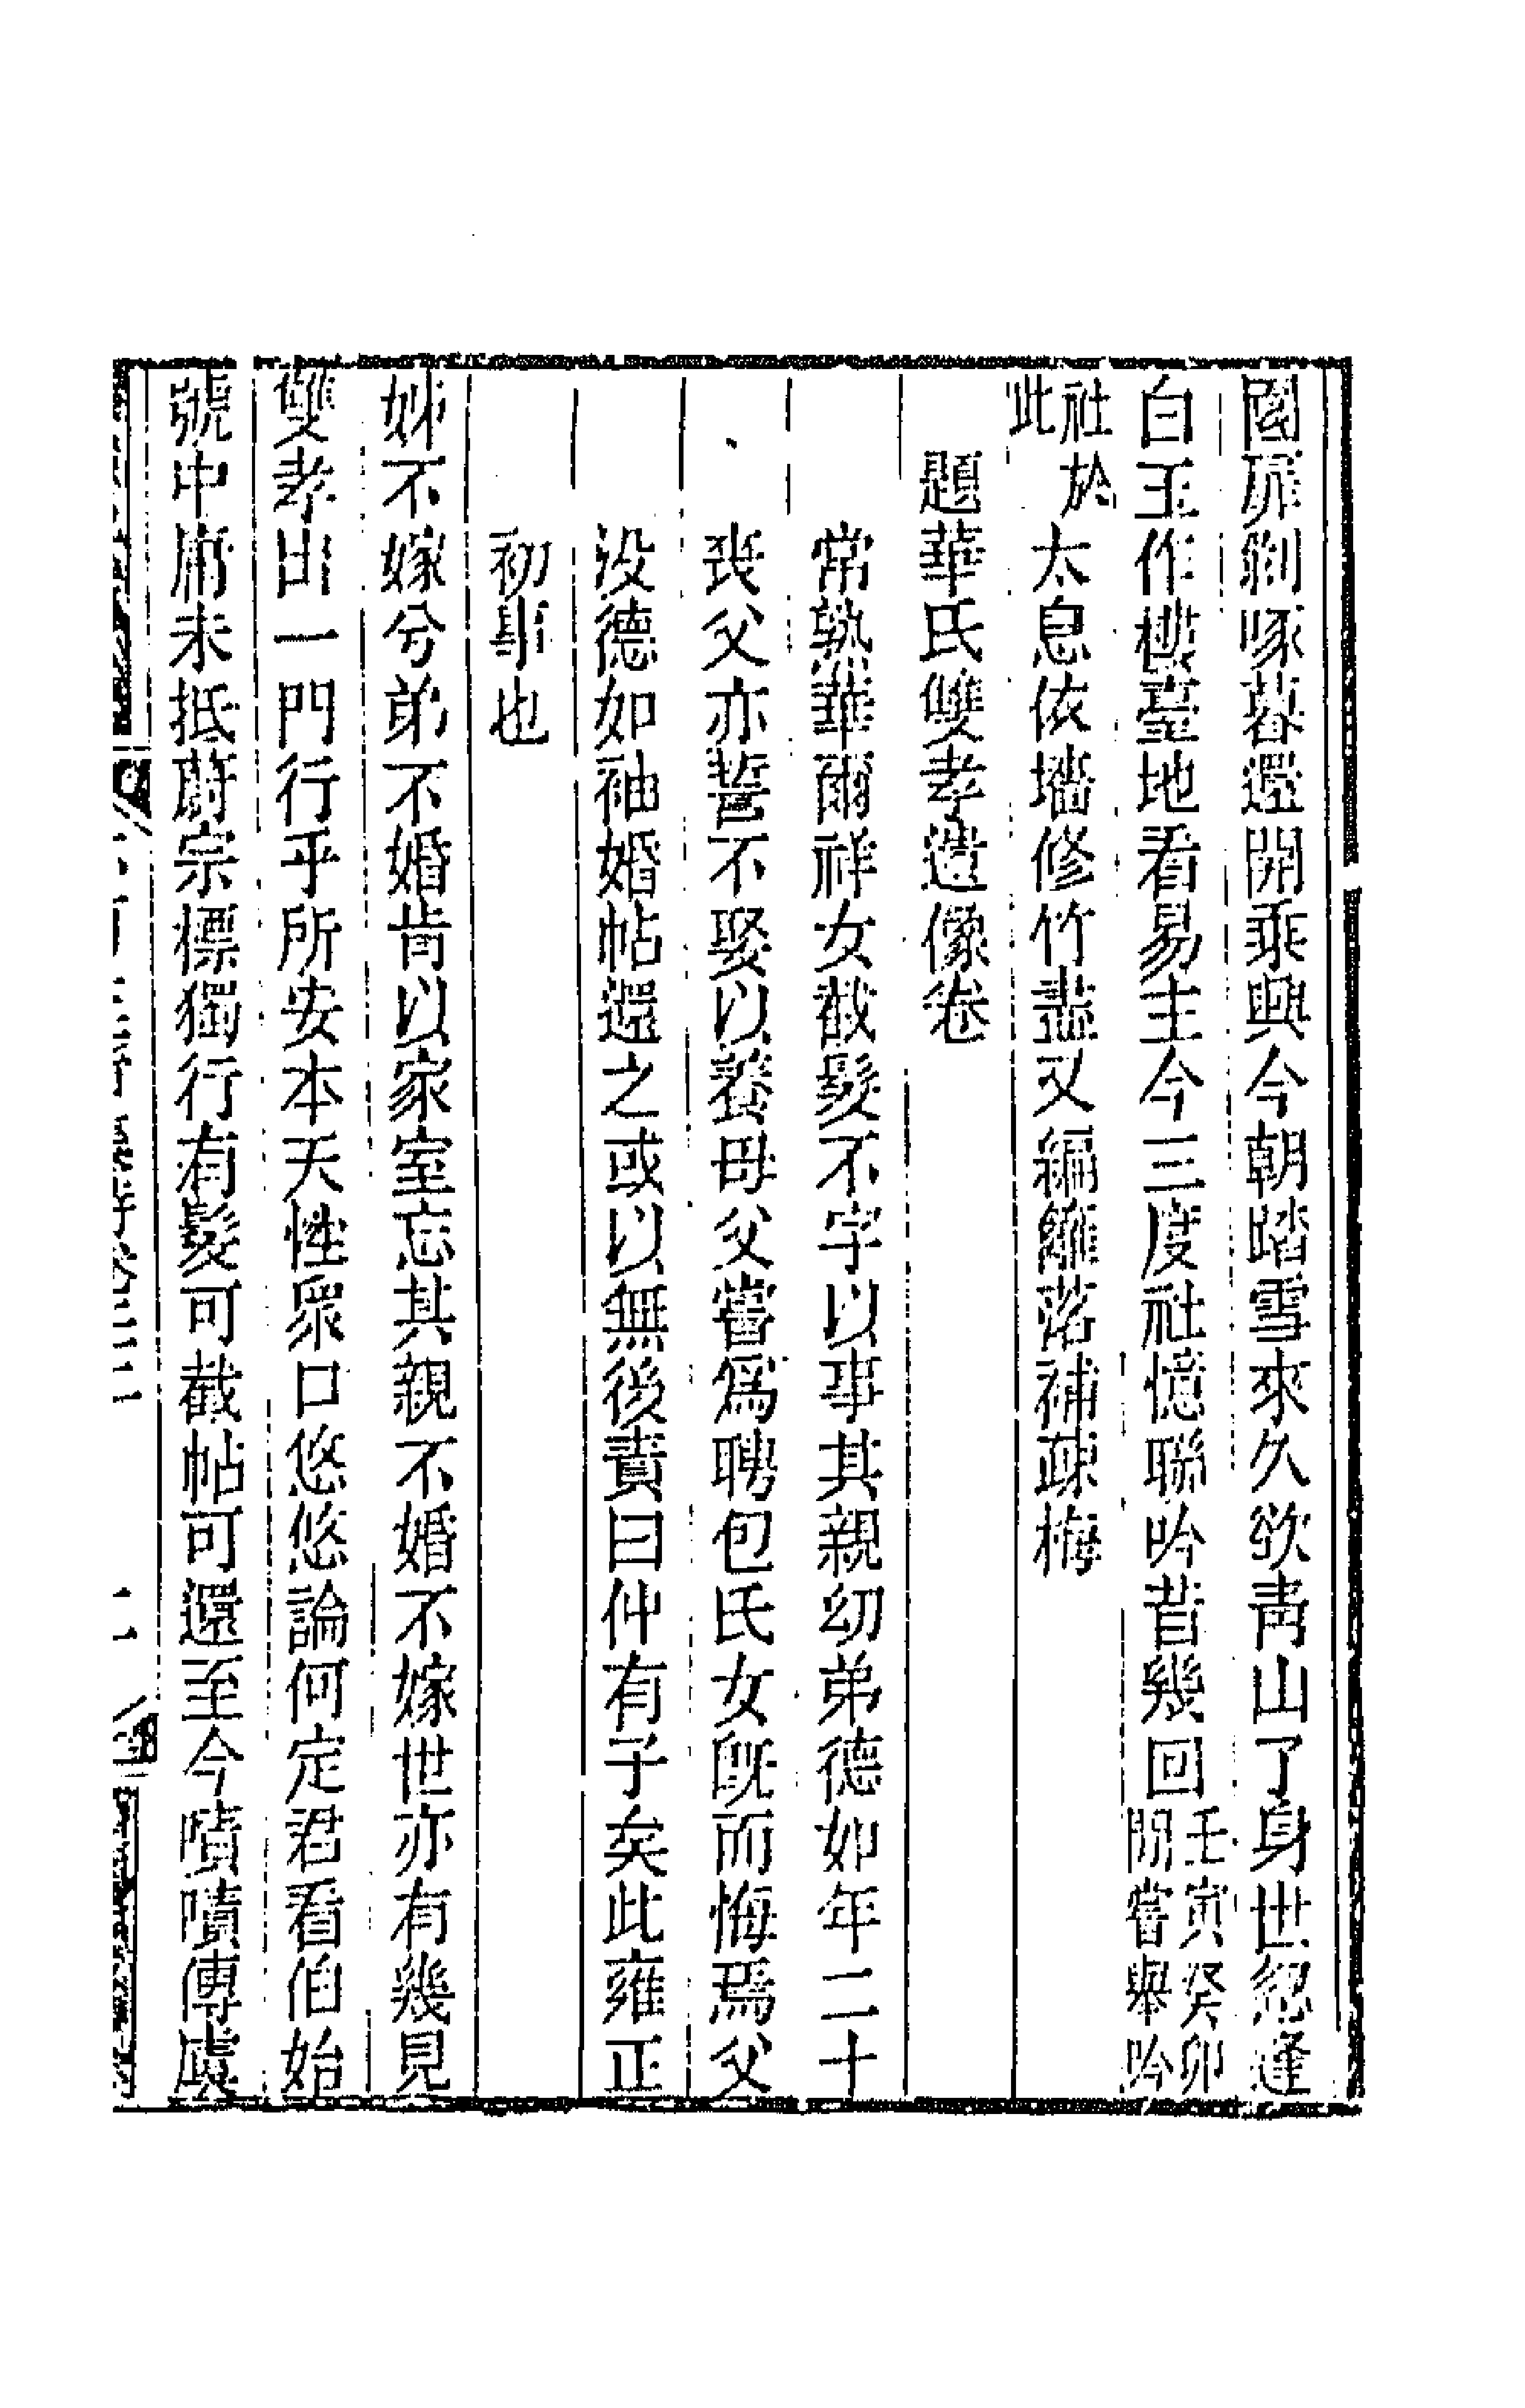 園扉剝啄暮還開乘興今朝踏雪來久欲靑山了身世忽逢
白玉作樓臺地看易主今三度社憶聯吟昔幾回壬寅癸卯
閒嘗舉吟
社於
此太息依墻修竹盡又編籬落補疎梅
題華氏雙孝遺像卷
常熟華爾祥女截髮不字以事其親幼弟德如年二十
喪父亦誓不娶以養母父嘗爲聘包氏女旣而悔焉父
没德如袖婚帖還之或以無後責曰仲有子矣此雍正
初事也
姊不嫁兮弟不婚肯以家室忘其親不婚不嫁世亦有幾見
雙孝出一門行乎所安本天性衆口悠悠論何定君看伯始
號中庸未抵蔚宗標獨行有髮可截帖可還至今嘖嘖傳虞